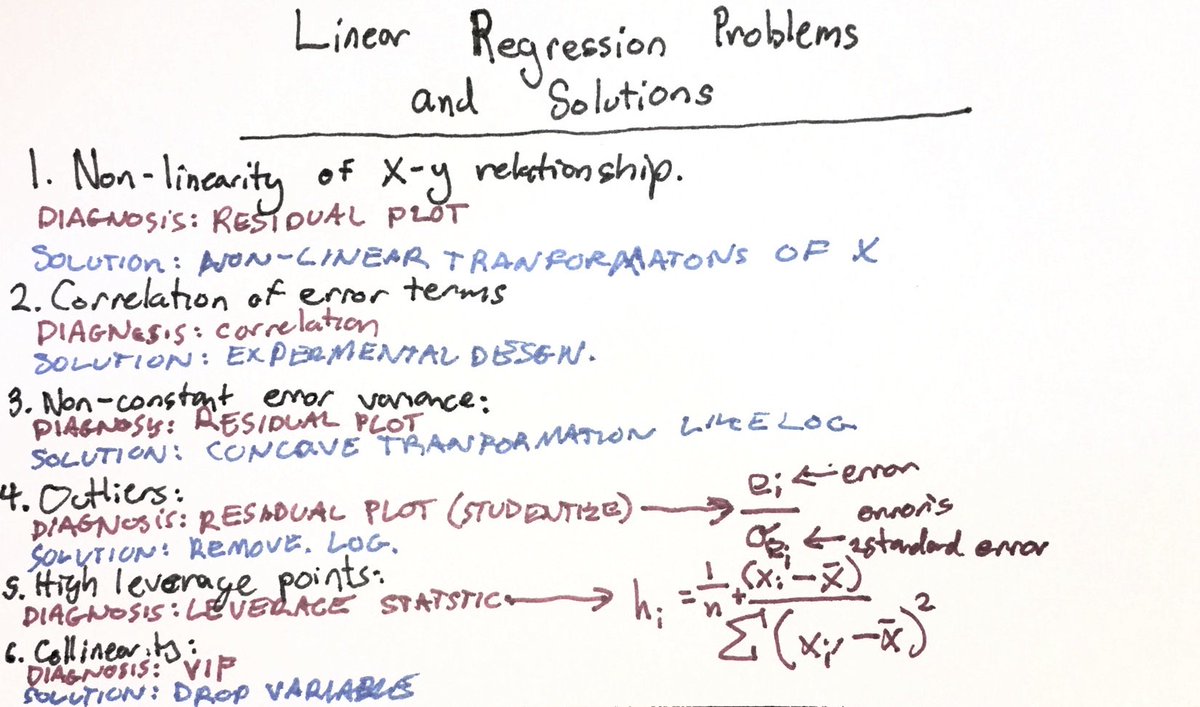 Linear Regression Problems
and Solutions
1. Non-linearity of X-y relationship.
DIAGNOSIS: RESIDUAL PLOT
SOLUTION: NON-LINEAR TRANFORMATONS OF X
2. Correlation of error terms
DIAGNESIS: correlation
SOLUTION: EXPERMENTAL DESEGN.
3. Non-constant error variance:
DIAGNOSY: RESIDUAL PLOT
SOLUTION: CONCAVE TRANFORMATION LIKE LOG
4. Outliers:
DIAGNOSIS: RESADUAL PLOT (STUDENTIZE) → eᵢ ← error
σₑᵢ ← error's standard error
SOLUTION: REMOVE. LOG.
5. High leverage points:
DIAGNOSIS: LEVERAGE STATSTIC → hᵢ = 1/n + (xᵢ - x̄) / Σ(xᵢ' - x̄)²
6. Collinearity:
DIAGNOSIS: VIF
SOLUTION: DROP VARIABLE